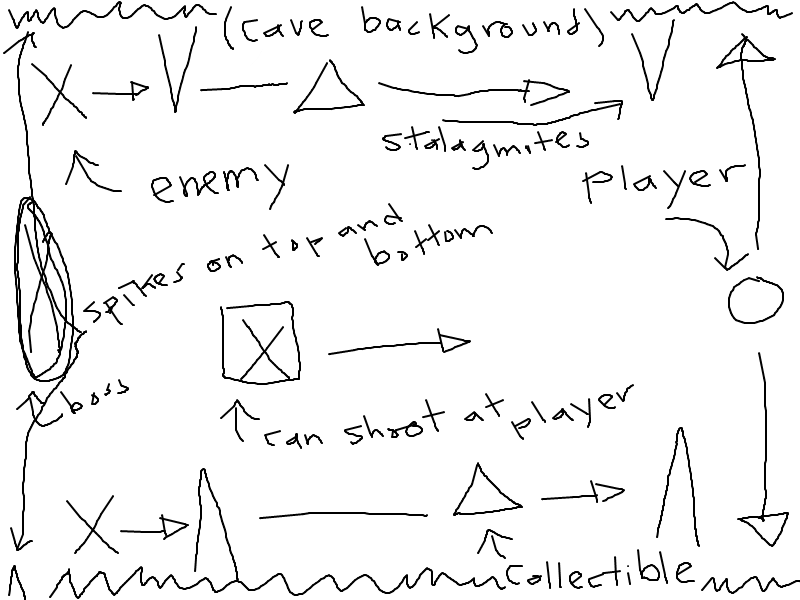 (cave background)
stalagmites
enemy
player
spikes on top and
bottom
boss
can shoot at player
collectible